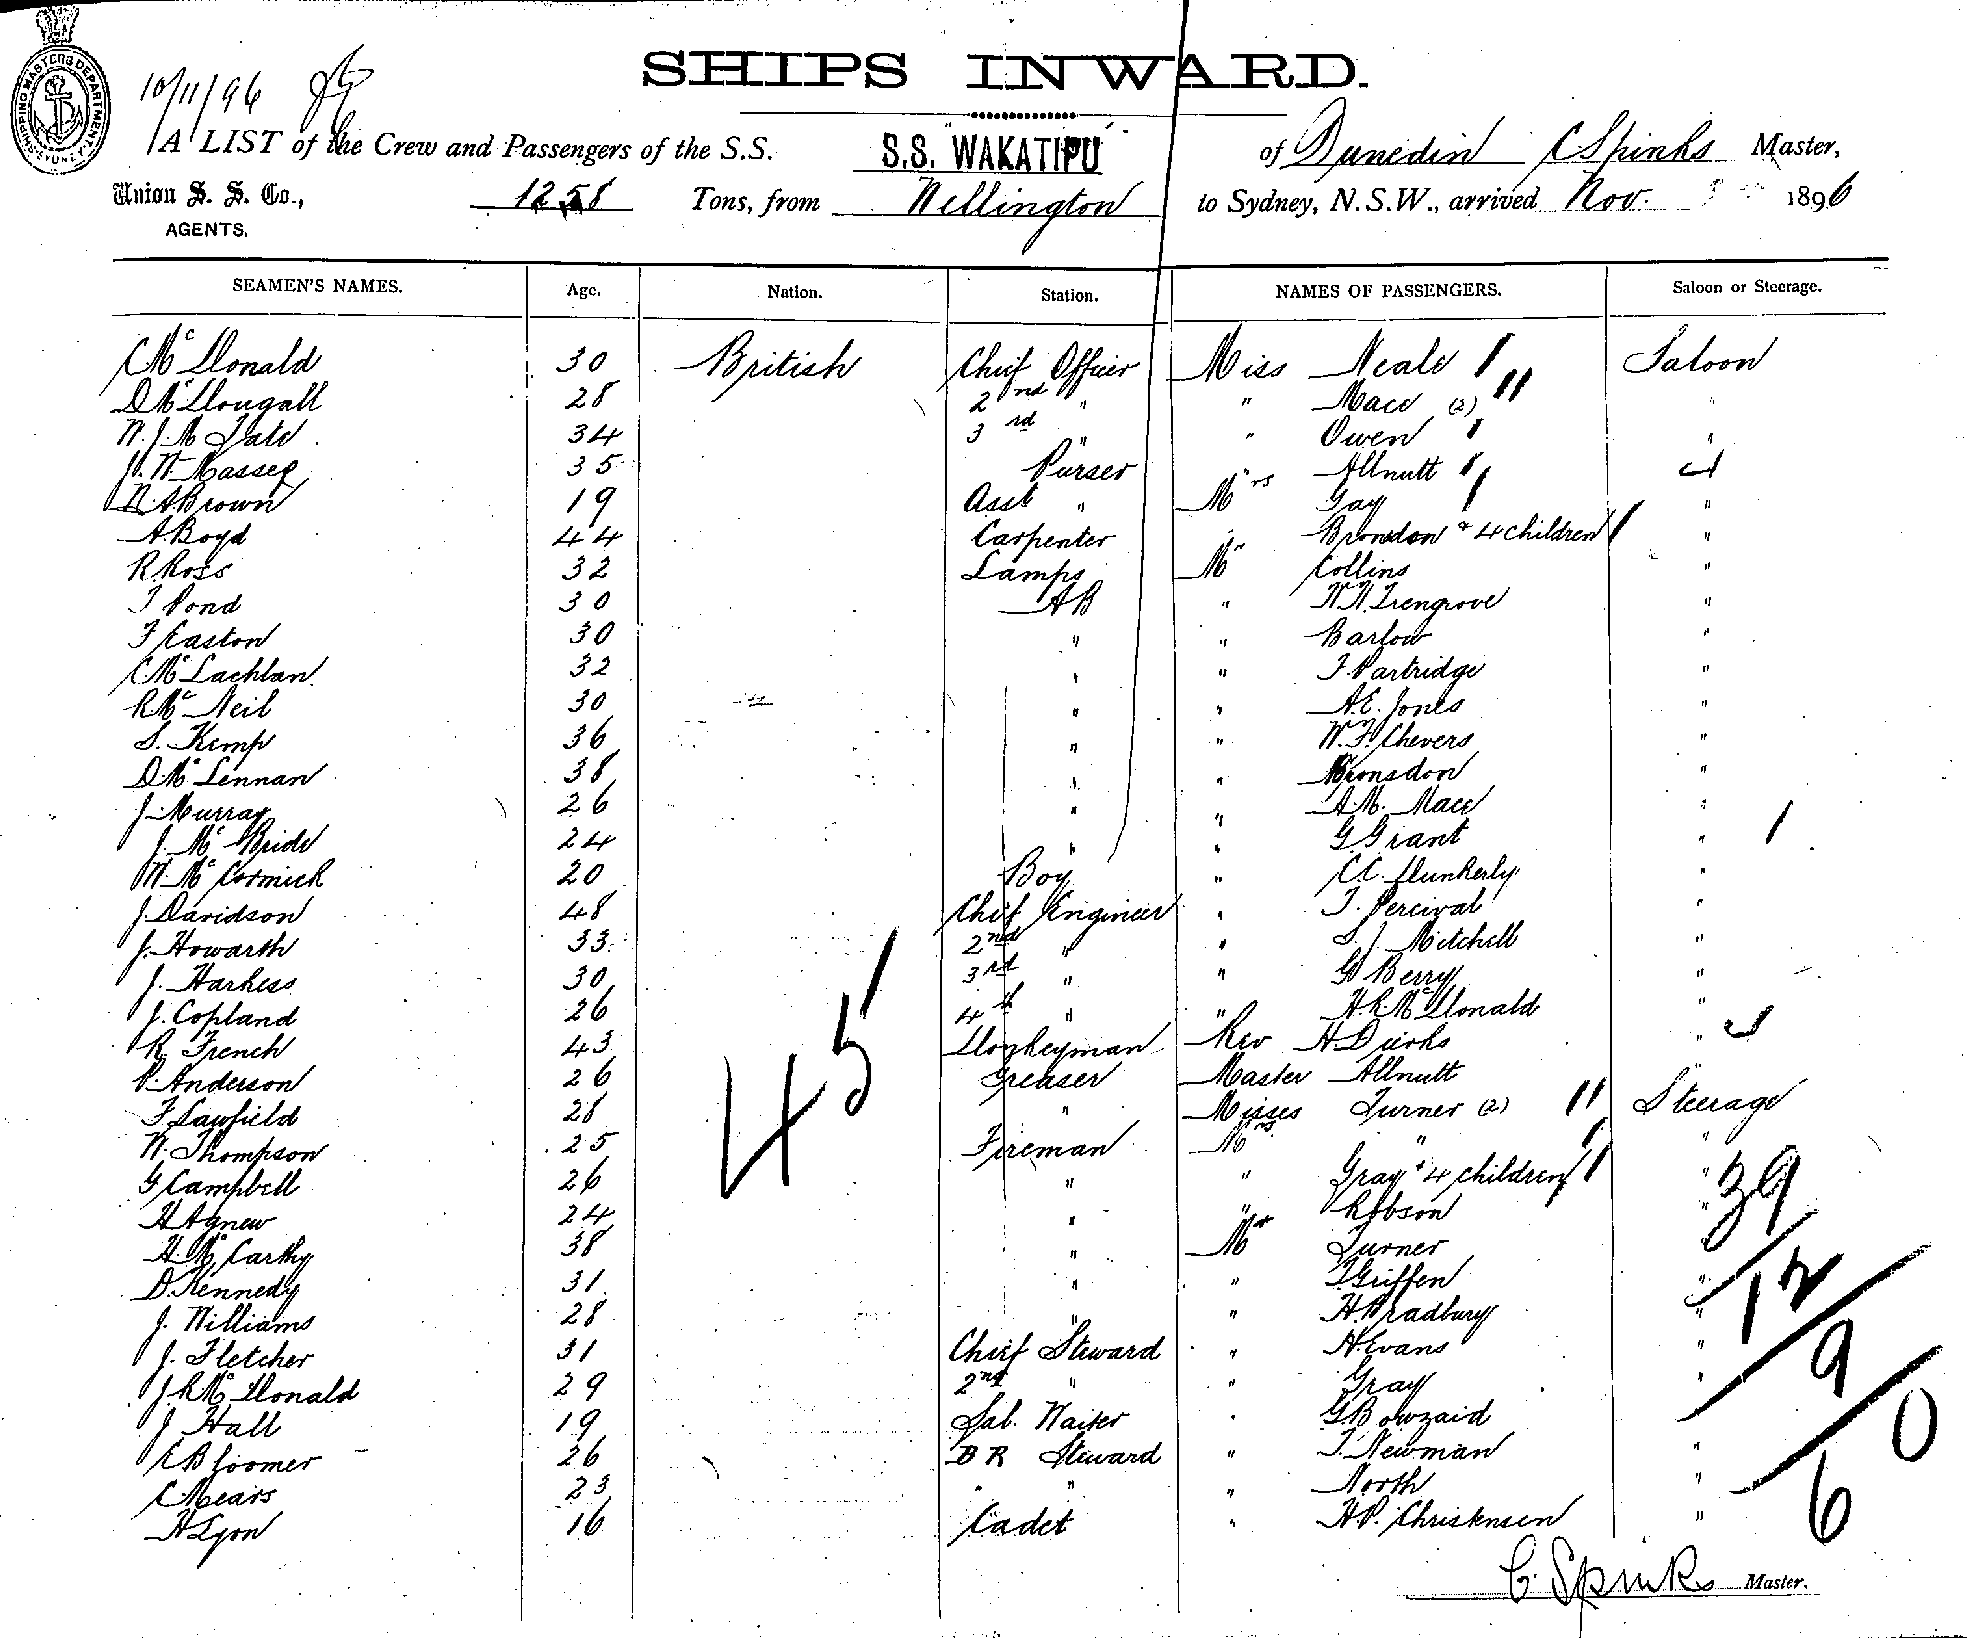 SHIPPING MASTER'S DEPARTMENT SYDNEY
10/11/96
SHIPS INWARD.
A LIST of the Crew and Passengers of the S.S. S.S. WAKATIPU of Dunedin C Spinks Master,
Union S. S. Co., AGENTS. 1258 Tons, from Wellington to Sydney, N.S.W., arrived Nov. 1896
SEAMEN'S NAMES. Age. Nation. Station. NAMES OF PASSENGERS. Saloon or Steerage.
C Mc Donald 30 British Chief Officer Miss Neale Saloon
D Mc Dougall 28 2nd " " Mace (2) "
W. J. M Tate 34 3rd " " Owen "
J. W. Massey 35 Purser " Allnutt
N. A Brown 19 Asst " Mrs Gay "
A. Boyd 44 Carpenter " Bronsdon & 4 children "
R. Ross 32 Lamps Mr Collins "
T Pond 30 AB " W. N. Trengrove "
F Easton 30 " " Barlow "
C Mc Lachlan 32 " " F. Partridge "
R Mc Neil 30 " " A. E. Jones "
S. Kemp 36 " " W. F. Chevers "
D Mc Lennan 38 " " Bronsdon "
J. Murray 26 " " A. M. Mace "
J. Mc Bride 24 " " G Grant "
W. Mc Cormick 20 Boy " C C. Dunkerly "
J. Davidson 48 Chief Engineer " T. Percival "
J. Howarth 33 2nd " " S. J. Mitchell "
J. Harkess 30 3rd " " G Berry "
J. Copland 26 4th " " H. R. Mc Donald "
R. French 43 Donkeyman Rev H Dierks "
P. Anderson 26 Greaser Master Allnutt
F Lawfield 28 " Misses Turner (2) Steerage
W. Thompson 25 Fireman Mrs " "
G Campbell 26 " " Gray & 4 children "
H Agnew 24 " " Robson "
H. Mc Carthy 38 " Mr Turner
D. Kennedy 31 " " T Griffen "
J. Williams 28 " " H. Bradbury "
J. Fletcher 31 Chief Steward " H. Evans "
J. R Mc Donald 29 2nd " " Gray "
J Hall 19 Sal. Waiter " G Bowzaid
C B Loomer 26 B R Steward " T. Newman "
C. Mears 23 " " " North "
H Lyon 16 Cadet " H. P. Christensen "
45
39
12
9
0
6
C. Spinks Master.